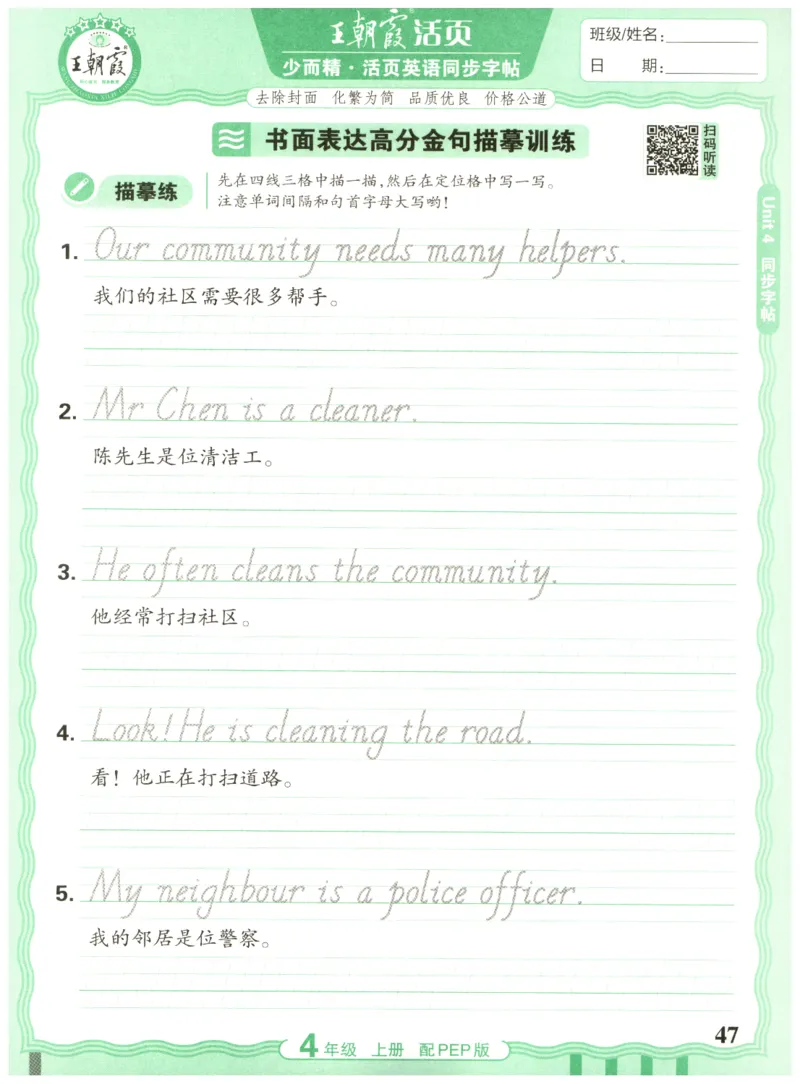 王朝霞
王朝霞活页
少而精·活页英语同步字帖
班级/姓名:
日 期:
去除封面 化繁为简 品质优良 价格公道
书面表达高分金句描摹训练
扫码听读
描摹练
先在四线三格中描一描,然后在定位格中写一写。
注意单词间隔和句首字母大写哟!
Unit 4 同步字帖
1. Our community needs many helpers.
我们的社区需要很多帮手。
2. Mr Chen is a cleaner.
陈先生是位清洁工。
3. He often cleans the community.
他经常打扫社区。
4. Look! He is cleaning the road.
看! 他正在打扫道路。
5. My neighbour is a police officer.
我的邻居是位警察。
47
4年级 上册 配PEP版